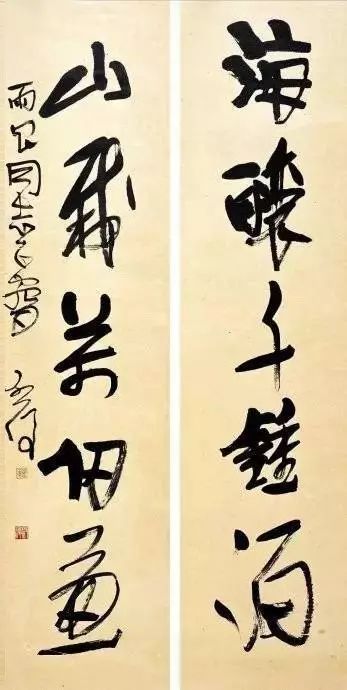 海釀千鍾酒
山栽萬仞葱
同志